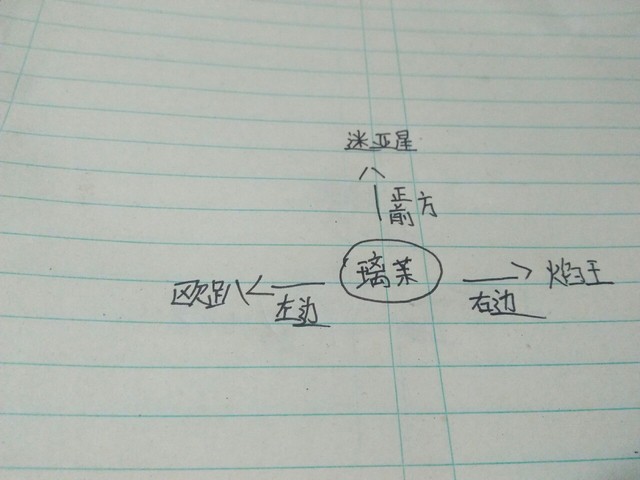 迷亚星
正前方
璃茉
欧趴
左边
右边
焰王